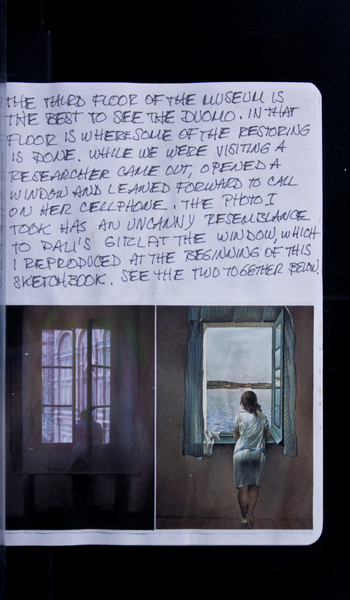 THE THIRD FLOOR OF THE MUSEUM IS
THE BEST TO SEE THE DUOMO. IN THAT
FLOOR IS WHERE SOME OF THE RESTORING
IS DONE. WHILE WE WERE VISITING A
RESEARCHER CAME OUT, OPENED A
WINDOW AND LEANED FORWARD TO CALL
ON HER CELLPHONE. THE PHOTO I
TOOK HAS AN UNCANNY RESEMBLANCE
TO DALI'S GIRL AT THE WINDOW, WHICH
I REPRODUCED AT THE BEGINNING OF THIS
SKETCHBOOK. SEE THE TWO TOGETHER BELOW.